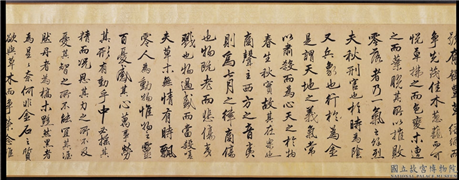 爭茂佳木葱蘢而可
悅草拂之而色變木遭
之而葉脫其所以摧敗
零落者乃一氣之餘烈
夫秋刑官也於時為陰
又兵象也於行為金
是謂天地之義氣常
以肅殺而為心天之於物
春生秋實故其在樂也
商聲主西方之音夷
則為七月之律商傷
也物既老而悲傷夷
戮也物過盛而當殺嗟
夫草木無情有時飄
零人為動物惟物之靈
百憂感其心萬事勞
其形有動乎中必搖其
精而況思其力之所不及
憂其智之所不能宜其渥
然丹者為槁木黟然黑者
為星星奈何非金石之質
欲與草木而爭榮念誰
國立故宮博物院
NATIONAL PALACE MUSEUM